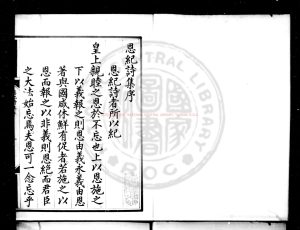 恩紀詩集序
恩紀詩者所以紀
皇上親睦之恩於不忘也上以恩施之
下以義報之則恩由義永義由恩
著與國咸休鮮有促者若施之以
恩而報之以非義則恩絕而君臣
之大法始忘焉失恩可一愈忘乎
CENTRAL LIBRARY